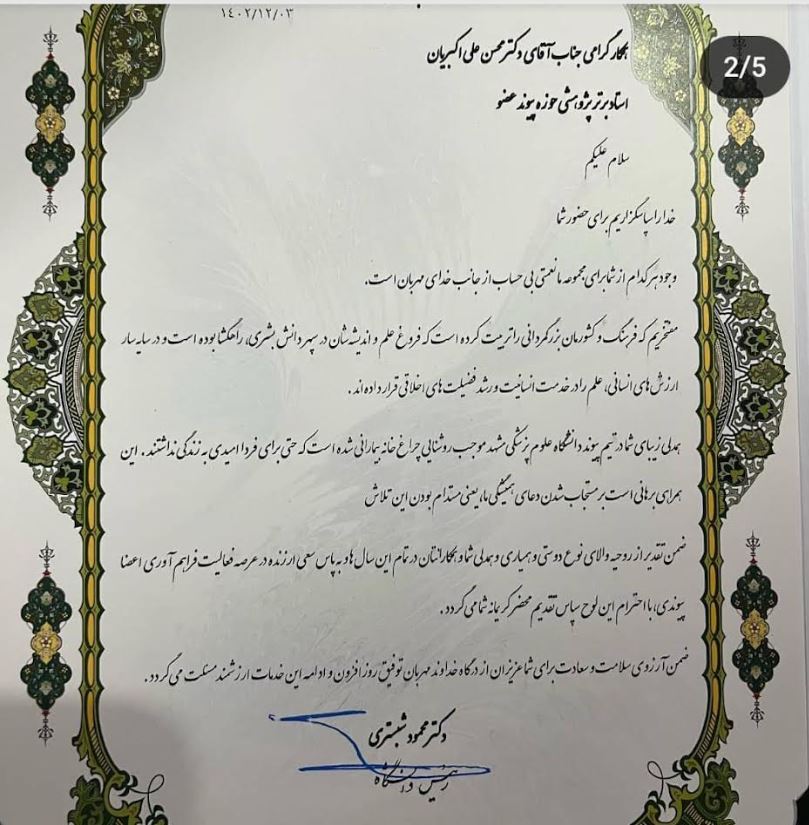 ۱۴۰۲/۱۲/۰۳
2/5
همکار گرامی جناب آقای دکتر محسن علی اکبریان
استاد برتر پژوهشی حوزه پیوند عضو
سلام علیکم
خدا را سپاسگزاریم برای حضور شما
وجود هر کدام از شما برای مجموعه ما نعمتی بی حساب از جانب خدای مهربان است.
مفتخریم که فرهنگ و کشورمان بزرگمردانی را تربیت کرده است که فروغ علم و اندیشه شان در سپهر دانش بشری، راهگشا بوده است و در سایه سار
ارزش های انسانی، علم را در خدمت انسانیت و رشد فضیلت های اخلاقی قرار داده اند.
همدلی زیبای شما در تیم پیوند دانشگاه علوم پزشکی مشهد موجب روشنایی چراغ خانه بیمارانی شده است که حتی برای فردا امیدی به زندگی نداشتند. این
همراهی برهانی است بر مستجاب شدن دعای همیشگی ما، یعنی مستدام بودن این تلاش
ضمن تقدیر از روحیه والای نوع دوستی و همیاری و همدلی شما و همکارانتان در تمام این سال ها و به پاس سعی ارزنده در عرصه فعالیت فراهم آوری اعضا
پیوندی، با احترام این لوح سپاس تقدیم محضر کریمانه شما می گردد.
ضمن آرزوی سلامت و سعادت برای شما عزیزان از درگاه خداوند مهربان توفیق روز افزون و ادامه این خدمات ارزشمند مسئلت می گردد.
دکتر محمود شبستری
رئیس دانشگاه